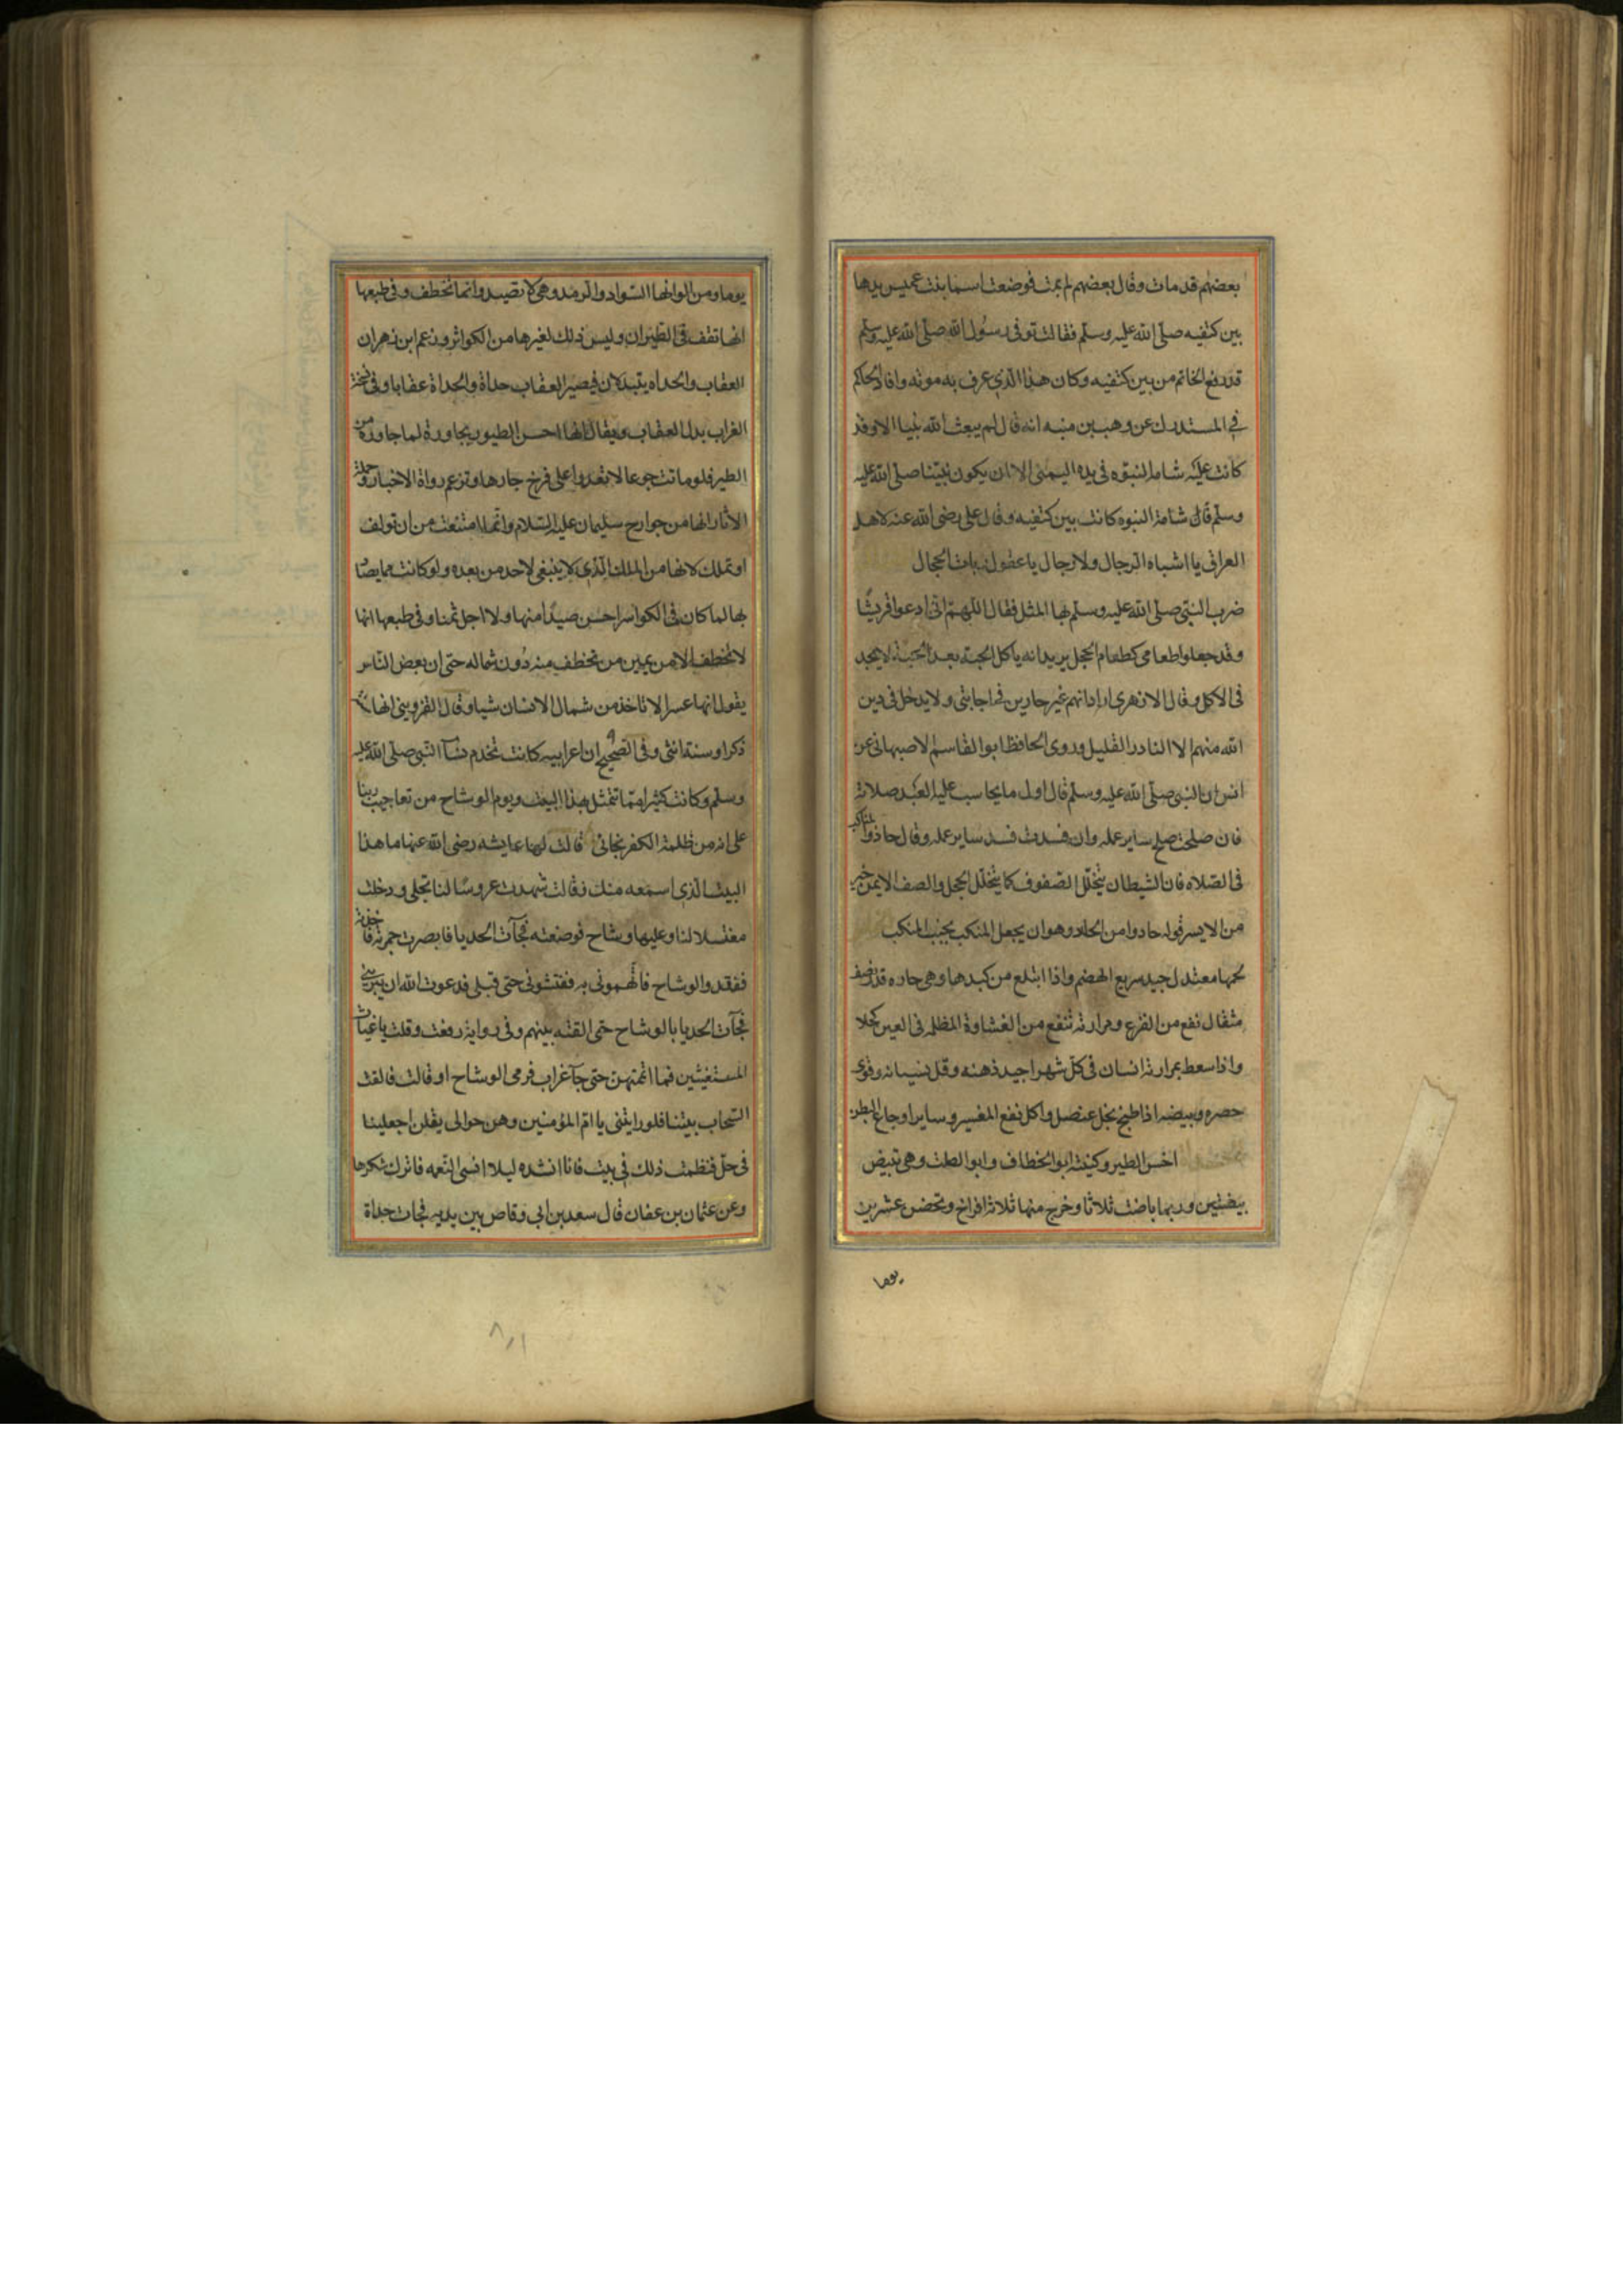 بعضهم قد مات وقال بعضهم لم يمت فوضعت اسما بنت عميس يدها
بين كتفيه صلى الله عليه وسلم فقالت توفى رسول الله صلى الله عليه وسلم
قد رفع الخاتم من بين كتفيه وكان هذا الذى عرف به موته وافاد الحاكم
في المستدرك عن وهب بن منبه انه قال لم يبعث الله نبيا الا وقد
كانت عليه شامة النبوه فى يده اليمنى الا ان يكون نبينا صلى الله عليه
وسلم فان شامة النبوه كانت بين كتفيه وقال على رضى الله عنه لاهل
العراق يا اشباه الرجال ولا رجال يا عقول ربات الحجال
ضرب النبى صلى الله عليه وسلم بها المثل فقال اللهم انى ادعوا قريشا
وقد جعلوا طعامى كطعام الحجل يريد انه ياكل الحبة بعد الحبة لا يجد
فى الاكل وقال الازهرى اراد انهم غير جادين فى اجابتى ولا يدخل فى دين
الله منهم الا النادر القليل وروى الحافظ ابو القاسم الاصبهانى عن
انس ان النبى صلى الله عليه وسلم قال اول ما يحاسب عليه العبد صلاته
فان صلحت صلح ساير عمله وان فسدت فسد ساير عمله وقال حاذوا بالمناكب
فى الصلاه فان الشيطان يتخلل الصفوف كما يتخلل الحجل والصف الايمن خير
من الايسر قوله حاذوا من وهو ان يجعل المنكب بجنب المنكب
لحمها معتدل جيد سريع الهضم واذا ابتلع من كبدها وهى حاره قدر نصف
مثقال نفع من الفزع ومرارته تنفع من الغشاوة المظلمه فى العين كحلا
واذا سعط بمرارته انسان فى كل شهر اجيد ذهنه وقل نسيانه وقوى
بصره وبيضه اذا طبخ بخل عنصل واكل نفع المغس وساير اوجاع البطن
اخس الطير وكنيته ابو الخطاف وابو الصلت وهى تبيض
بيضتين وربما باضت ثلاثا وخرج منها ثلاثة افراخ وتحضن عشرين
يوما
يوما ومن الوانها السواد والرمد وهى لا تصيد وانما تخطف وفى طبعها
انها تقف فى الطيران وليس ذلك لغيرها من الكواسر وزعم ابن زهر ان
العقاب والحداه يتبدلان فيصير العقاب حداة والحداة عقابا وفى نسخة
الغراب بدل العقاب ويقال انها احسن الطيور مجاورة لما جاورها من
الطير فلو ماتت جوعا لا تعدوا على فرخ جارها وتزعم رواة الاخبار وحملة
الاثار انها من جوارح سليمان عليه السلام وانها امتنعت من ان تولف
او تملك لانها من الملك الذى لا ينبغى لاحد من بعده ولو كانت مما يصاد
بها لما كان فى الكواسر احسن صيدا منها ولا اجل ثمنا وفى طبعها انها
لا تخطف الا من يمين من تخطف منه دون شماله حتى ان بعض الناس
يقول انها عسرا لا تاخذ من شمال الانسان شيا وقال القزوينى انها سنة
ذكر او سنة انثى وفى الصحيح ان اعرابيه كانت تخدم نسآ النبى صلى الله عليه
وسلم وكانت كثيرا ما تتمثل بهذا البيت ويوم الوشاح من تعاجيب ربنا
على انه من ظلمة الكفر نجانى قالت لها عايشه رضى الله عنها ما هذا
البيت الذى اسمعه منك فقالت شهدت عروسا لنا تجلى ودخلت
مغتسلا لنا وعليها وشاح فوضعته فجآت الحديا فابصرت حمرته فاخذته
ففقدوا الوشاح فاتهمونى به ففتشونى حتى قبلى فدعوت الله ان يبرينى
فجآت الحديا بالوشاح حتى القته بينهم وفى رواية رفعت وقلت يا غياث
المستغيثين فما اتممتهن حتى جآ غراب فرمى الوشاح او قالت فالقت
السحاب بيننا فلو رايتنى يا ام المؤمنين وهن حوالى يقلن اجعلينا
فى حل فنظمت ذلك فى بيت فانا انشده ليلا انسى النعمه فاترك شكرها
وعن عثمان بن عفان قال سعد بن ابى وقاص بين يديه فجات حداة